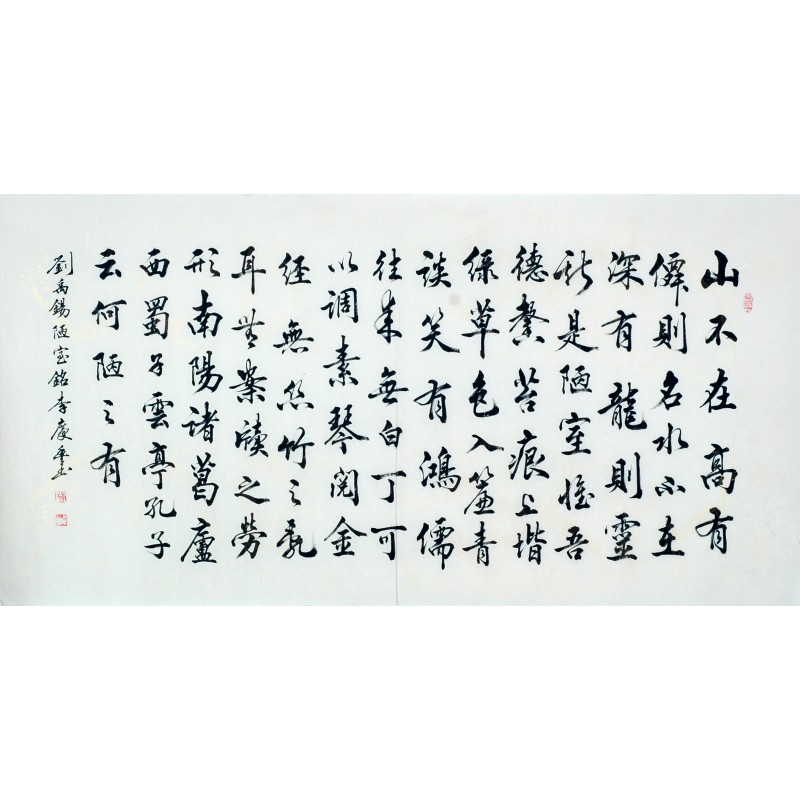 山不在高有
僊則名水不在
深有龍則靈
斯是陋室惟吾
德馨苔痕上堦
綠草色入簾青
談笑有鴻儒
往來無白丁可
以調素琴閱金
經無絲竹之亂
耳無案牘之勞
形南陽諸葛廬
西蜀子雲亭孔子
云何陋之有
劉禹錫陋室銘李慶書